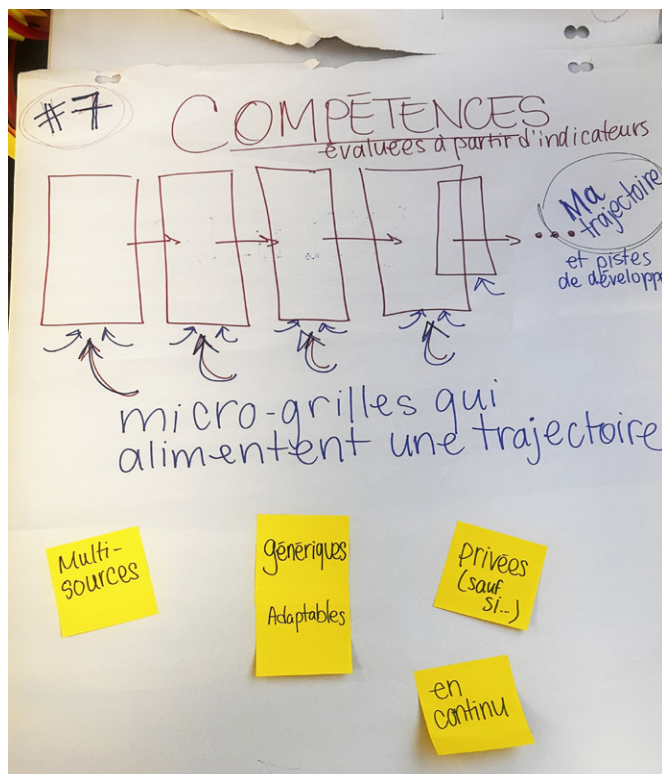 #7
COMPÉTENCES
évaluées à partir d'indicateurs
Ma
trajectoire
et pistes
de développe
micro-grilles qui
alimentent une trajectoire
Multi-
sources
génériques
Adaptables
privées
(sauf
si...)
en
continu